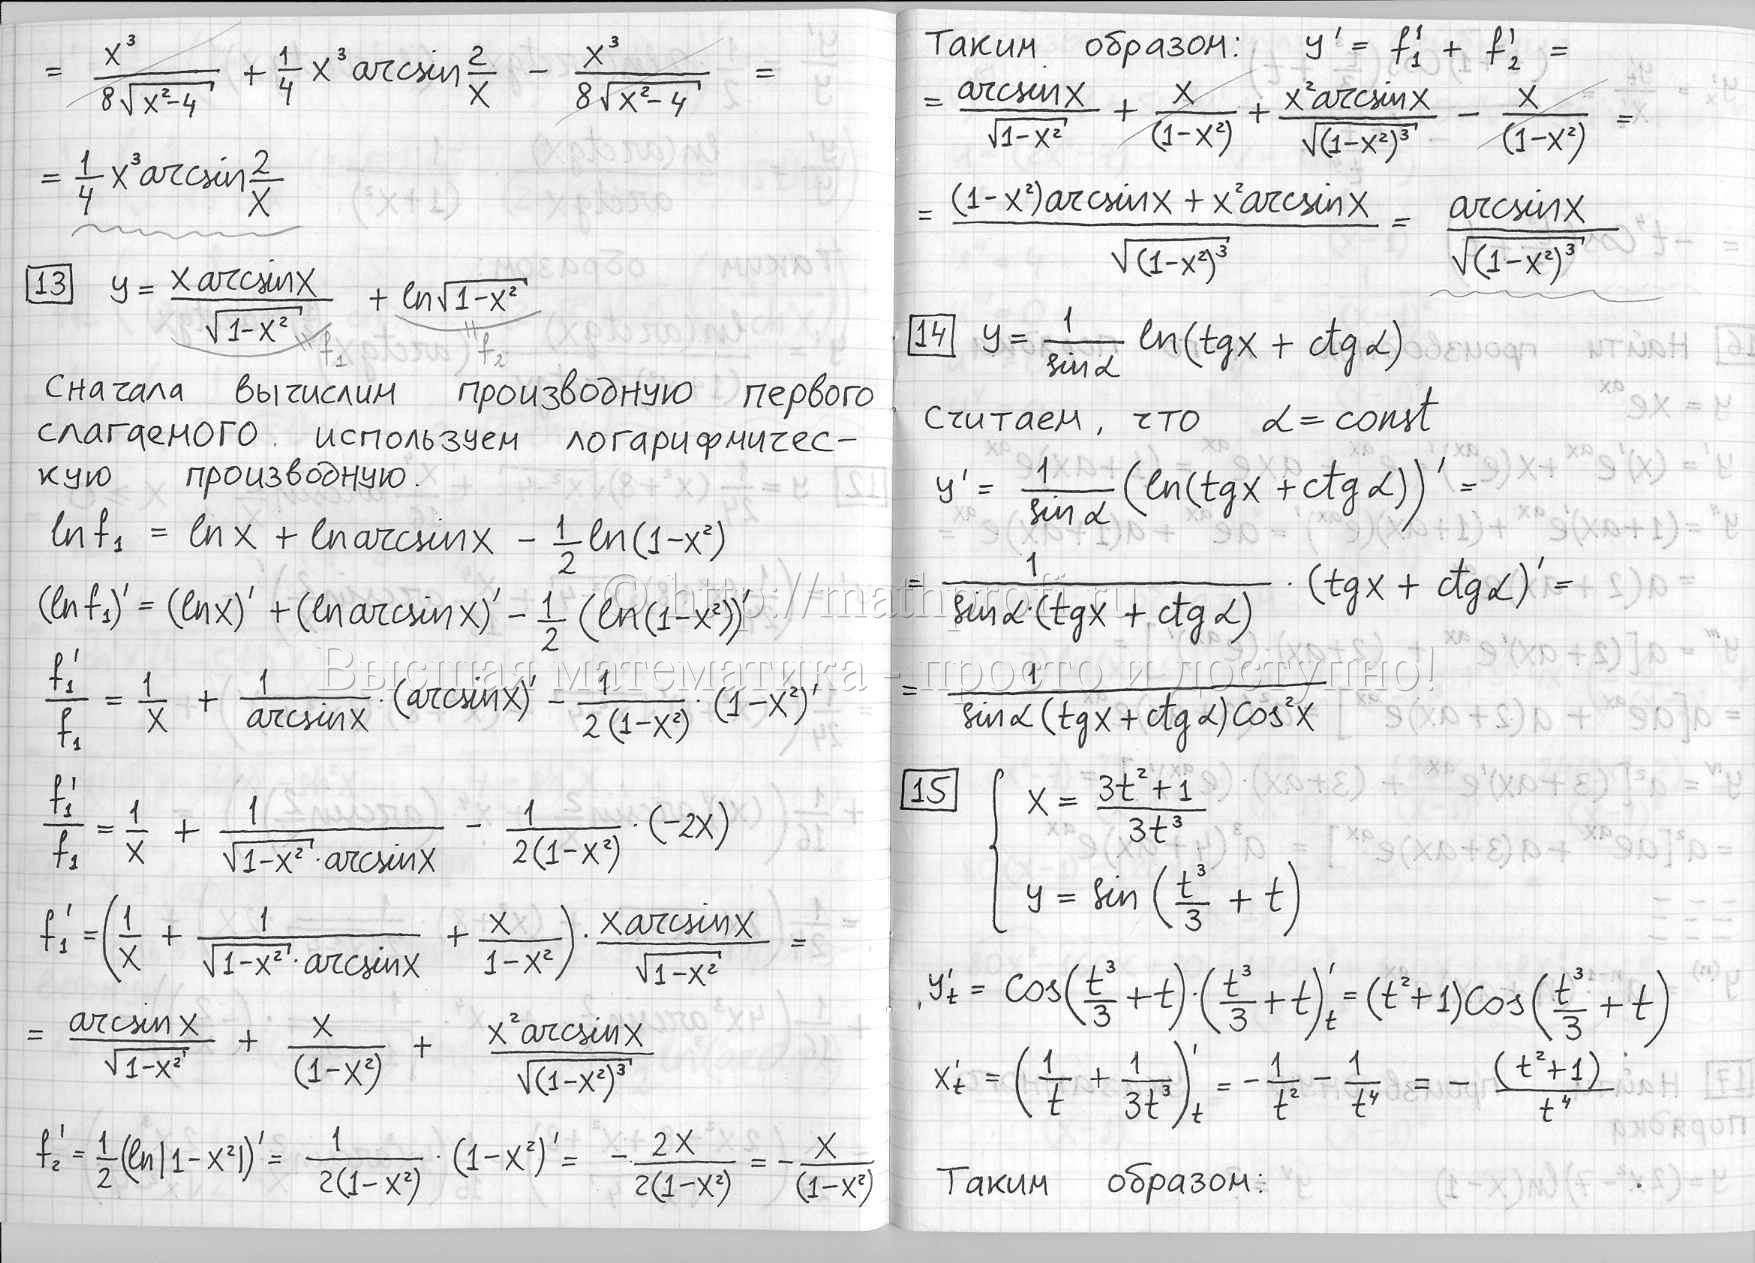 = x³/(8√(x²-4)) + 1/4 x³ arcsin 2/x - x³/(8√(x²-4)) =
= 1/4 x³ arcsin 2/x
13 y = x arcsin x/√(1-x²) + ln√(1-x²)
"f₁ "f₂
Сначала вычислим производную первого
слагаемого. используем логарифмичес-
кую производную.
ln f₁ = ln x + ln arcsin x - 1/2 ln(1-x²)
(ln f₁)' = (ln x)' + (ln arcsin x)' - 1/2 (ln(1-x²))'
f₁'/f₁ = 1/x + 1/arcsin x · (arcsin x)' - 1/(2(1-x²)) · (1-x²)'
f₁'/f₁ = 1/x + 1/(√(1-x²) · arcsin x) - 1/(2(1-x²)) · (-2x)
f₁' = (1/x + 1/(√(1-x²) · arcsin x) + x/(1-x²)) · x arcsin x/√(1-x²) =
= arcsin x/√(1-x²) + x/(1-x²) + x² arcsin x/√((1-x²)³)
f₂' = 1/2 (ln|1-x²|)' = 1/(2(1-x²)) · (1-x²)' = - 2x/(2(1-x²)) = - x/(1-x²)
Таким образом: y' = f₁' + f₂' =
= arcsin x/√(1-x²) + x/(1-x²) + x² arcsin x/√((1-x²)³) - x/(1-x²) =
= ((1-x²) arcsin x + x² arcsin x)/√((1-x²)³) = arcsin x/√((1-x²)³)
14 y = 1/sin α ln(tg x + ctg α)
Считаем, что α = const
y' = 1/sin α (ln(tg x + ctg α))' =
= 1/(sin α · (tg x + ctg α)) · (tg x + ctg α)' =
= 1/(sin α (tg x + ctg α) cos² x)
15 { x = (3t²+1)/3t³
y = sin (t³/3 + t)
y't = cos(t³/3 + t) · (t³/3 + t)'t = (t²+1) cos(t³/3 + t)
x't = (1/t + 1/3t³)'t = - 1/t² - 1/t⁴ = - (t²+1)/t⁴
Таким образом:
© http://mathprofi.ru
Высшая математика - просто и доступно!